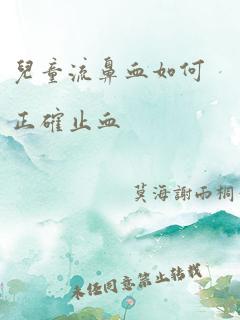 兒童流鼻血如何
正確止血
莫海謝雨桐
未經同意禁止轉載